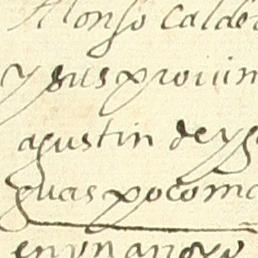 Alonso Calder
y sus provin
agustin de yg
guas pocoma
en un arroyo